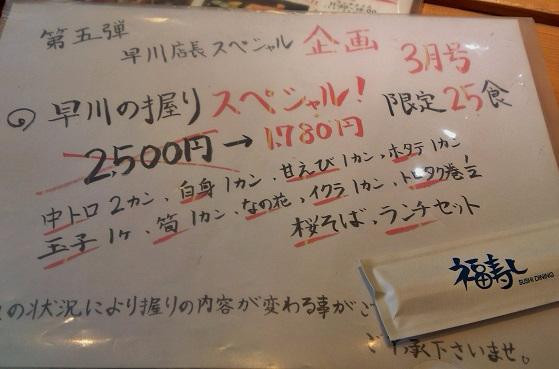 第五弾
早川店長スペシャル 企画 3月号
早川の握りスペシャル! 限定25食
2,500円→1,780円
中トロ2カン、白身1カン、甘えび1カン、ホタテ1カン
玉子1ヶ、筍1カン、なの花、イクラ1カン、トロタク巻½
桜そば、ランチセット
の状況により握りの内容が変わる事がご
ご了承下さいませ。
福寿し
SUSHI DINING